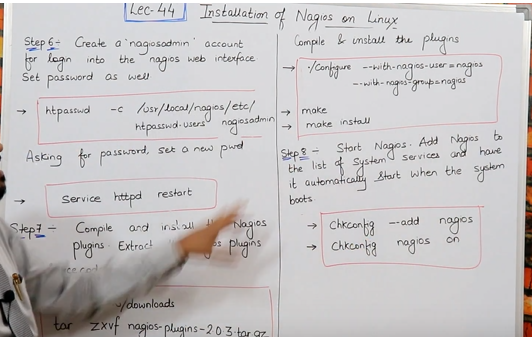 Lec-44
Installation of Nagios on Linux
Step 6:- Create a 'nagiosadmin' account
for login into the nagios web interface
Set password as well
→ htpasswd -c /usr/local/nagios/etc/
htpasswd.users nagiosadmin
Asking for password, set a new pwd
→ Service httpd restart
Step 7 - Compile and install Nagios
plugins. Extract plugins
/downloads
tar zxvf nagios-plugins-2.0.3.tar.gz
Compile & install the plugins
→ ./configure --with-nagios-user=nagios
--with-nagios-group=nagios
→ make
→ make install
Step 8 - Start Nagios. Add Nagios to
the list of System services and have
it automatically start when the system
boots.
→ Chkconfig --add nagios
→ Chkconfig nagios on